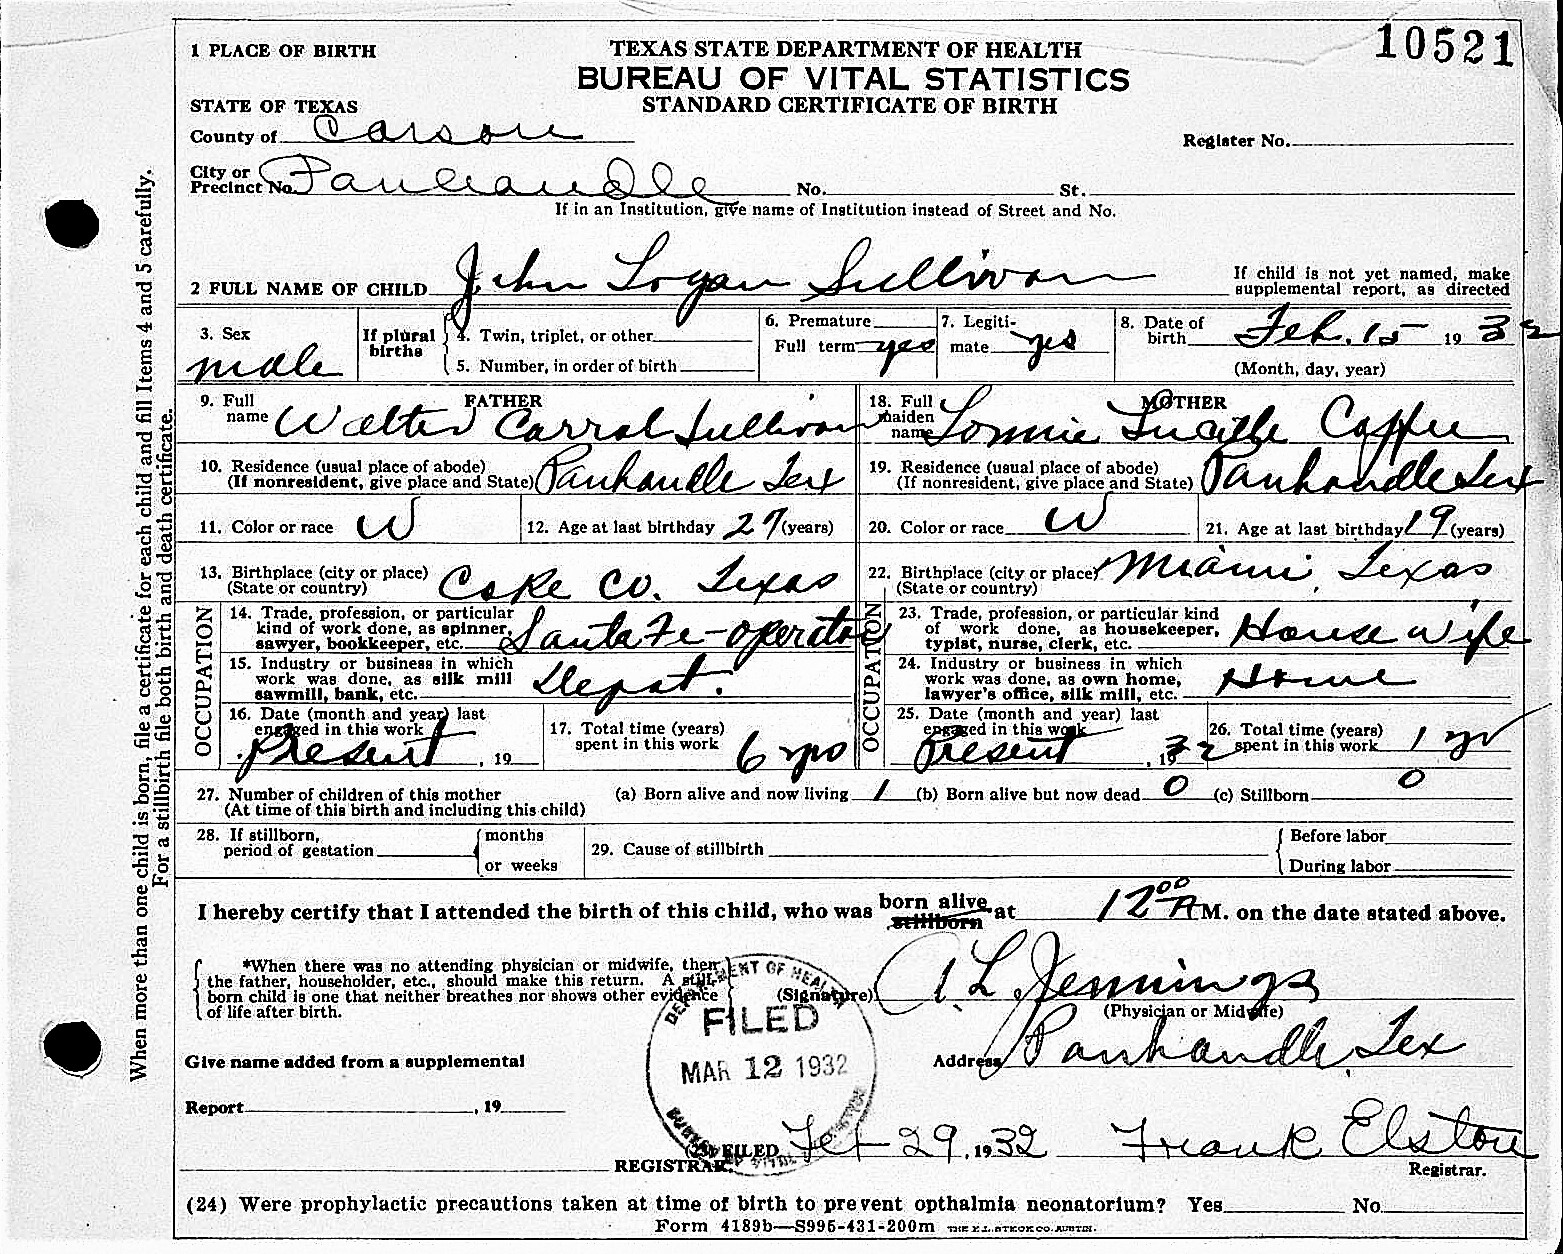 10521
1 PLACE OF BIRTH
TEXAS STATE DEPARTMENT OF HEALTH
BUREAU OF VITAL STATISTICS
STANDARD CERTIFICATE OF BIRTH
STATE OF TEXAS
County of Carson
Register No.
City or
Precinct No. Panhandle No. St.
If in an Institution, give name of Institution instead of Street and No.
2 FULL NAME OF CHILD John Logan Sullivan
If child is not yet named, make
supplemental report, as directed
3. Sex
male
If plural
births
4. Twin, triplet, or other
5. Number, in order of birth
6. Premature
Full term yes
7. Legiti-
mate yes
8. Date of
birth Feb. 15 1932
(Month, day, year)
FATHER
9. Full
name Walter Carrol Sullivan
MOTHER
18. Full
maiden
name Lonnie Lucille Coffee
10. Residence (usual place of abode)
(If nonresident, give place and State) Panhandle Tex
19. Residence (usual place of abode)
(If nonresident, give place and State) Panhandle Tex
11. Color or race W
12. Age at last birthday 27 (years)
20. Color or race W
21. Age at last birthday 19 (years)
13. Birthplace (city or place)
(State or country) Coke Co. Texas
22. Birthplace (city or place)
(State or country) Miami, Texas
OCCUPATION
14. Trade, profession, or particular
kind of work done, as spinner,
sawyer, bookkeeper, etc. Santa Fe-operator
15. Industry or business in which
work was done, as silk mill
sawmill, bank, etc. Depot.
16. Date (month and year) last
engaged in this work
Present , 19
17. Total time (years)
spent in this work 6 yrs
OCCUPATION
23. Trade, profession, or particular kind
of work done, as housekeeper,
typist, nurse, clerk, etc. House wife
24. Industry or business in which
work was done, as own home,
lawyer's office, silk mill, etc. Home
25. Date (month and year) last
engaged in this work
Present , 1932
26. Total time (years)
spent in this work 1 yr
27. Number of children of this mother
(At time of this birth and including this child)
(a) Born alive and now living 1 (b) Born alive but now dead 0 (c) Stillborn 0
28. If stillborn,
period of gestation
months
or weeks
29. Cause of stillbirth
Before labor
During labor
I hereby certify that I attended the birth of this child, who was born alive stillborn at 12 00 A M. on the date stated above.
*When there was no attending physician or midwife, then
the father, householder, etc., should make this return. A still-
born child is one that neither breathes nor shows other evidence
of life after birth.
(Signature) L. Jennings
(Physician or Midwife)
Address Panhandle, Tex
Give name added from a supplemental
Report , 19
DEPARTMENT OF HEALTH
FILED
MAR 12 1932
(25) FILED Feb 29, 1932 Frank Elston
REGISTRAR.
Registrar.
(24) Were prophylactic precautions taken at time of birth to prevent opthalmia neonatorium? Yes No
Form 4189b—S995-431-200m THE E.L. STECK CO. AUSTIN.
When more than one child is born, file a certificate for each child and fill Items 4 and 5 carefully.
For a stillbirth file both birth and death certificate.